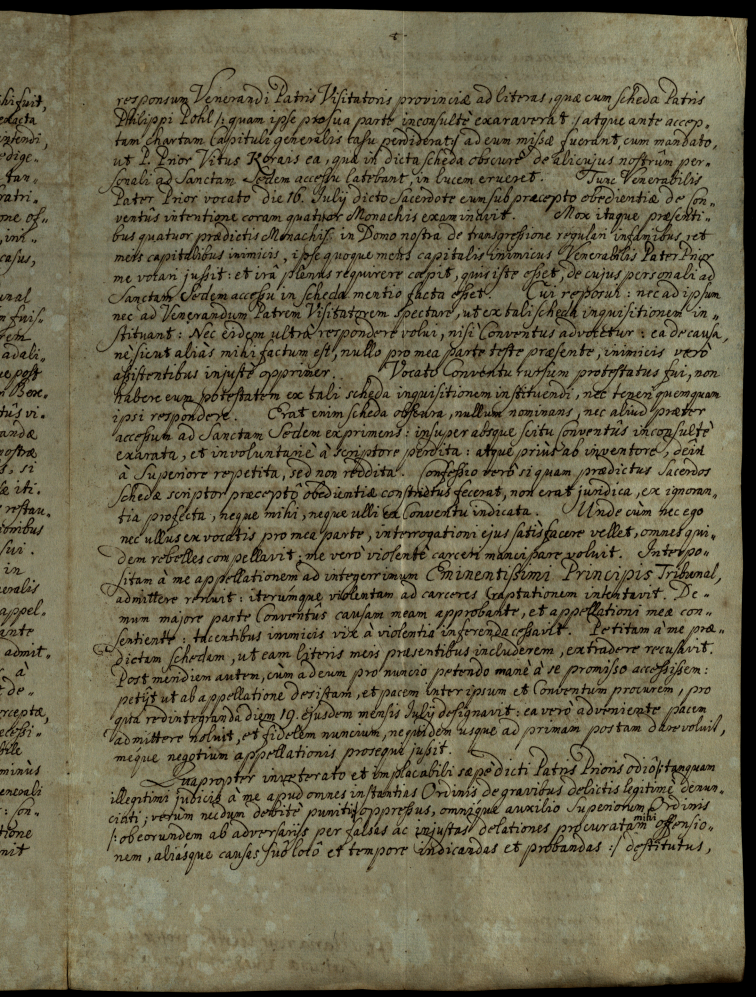 responsum Venerandi Patris Visitatoris provinciæ ad literas, quæ cum scheda Patris
Philippi Pohl /: quam ipse pro sua parte inconsultè exaraverat / atque ante accep-
tam chartam Capituli generalis casu perdiderat :/ ad eum missæ fuerant, cum mandato,
ut P. Prior Vitus Korais ea, quæ in dicta scheda obscurè de alicujus nostrûm per-
sonali ad Sanctam Sedem accessu latebant, in lucem erueret. Tunc Venerabilis
Pater Prior vocato die 16. Julij dicto Sacerdote eum sub præcepto obedientiæ de Con-
ventûs intentione coram quatuor Monachis examinavit. Mox itaque præsenti-
bus quatuor prædictis Monachis in Domo nostra de transgressione regulari infamibus, et
meis capitalibus inimicis, ipse quoque meus capitalis inimicus Venerabilis Pater Prior
me vocari jussit: et irâ plenus requirere coepit, quis iste esset, de cujus personali ad
Sanctam Sedem accessu in scheda mentio facta esset. Cui respondi: nec ad ipsum
nec ad Venerandum Patrem Visitatorem spectare, ut ex tali scheda inquisitionem in-
stituant: Nec eidem ultrà respondere volui, nisi Conventus advocetur: ea de causa,
ne sicut aliàs mihi factum est, nullo pro mea parte teste præsente, inimicis verò
assistentibus injustè opprimer. Vocato Conventu rursum protestatus fui, non
habere eum potestatem ex tali scheda inquisitionem instituendi, nec teneri quemquam
ipsi respondere. Erat enim scheda obscura, nullum nominans, nec aliud præter
accessum ad Sanctam Sedem exprimens: insuper absque scitu Conventûs inconsultè
exarata, et involuntariè à scriptore perdita: atque priùs ab inventore, dein
à Superiore repetita, sed non reddita. Confessio verò si quam prædictus Sacerdos
schedæ scriptor præceptô obedientiæ constrictus fecerat, non erat juridica, ex ignoran-
tia profecta, neque mihi, neque ulli ex Conventu indicata. Unde cùm nec ego
nec ullus ex vocatis pro mea parte, interrogationi ejus satisfacere vellet, omnes qui-
dem rebelles compellavit; me verò violentè carceri mancipare voluit. Interpo-
sitam à me appellationem ad integerrimum Eminentissimi Principis Tribunal,
admittere renuit: iterumque violentam ad carceres captationem intentavit. De-
mum majore parte Conventûs causam meam approbante, et appellationi meæ con-
sentiente: tacentibus inimicis vix à violentia inferenda cessavit. Petitam à me præ-
dictam schedam, ut eam literis meis præsentibus includerem, extradere recusavit.
Post meridiem autem, cùm ad eum pro nuncio petendo manè à se promisso accessissem:
petijt ut ab appellatione desistam, et pacem inter ipsum et Conventum procurem, pro
qua redintegranda diem 19. ejusdem mensis Julij designavit: ea verò adveniente pacem
admittere noluit, et fidelem nuncium, nequidem usque ad primam postam dare voluit,
meque negotium appellationis prosequi jussit.
Quapropter inveterato et implacabili sæpè dicti Patris Prioris odiô /: tanquam
illegitimi judicis à me apud omnes instantias Ordinis de gravibus delictis legitimè denun-
ciati; verùm necdum debitè puniti :/ oppressus, omnique auxilio Superiorum Ordinis
/: ob eorundem ab adversarijs per falsas ac injustas delationes procuratam mihi offensio-
nem, aliásque causas suô locô et tempore indicandas et probandas :/ destitutus,